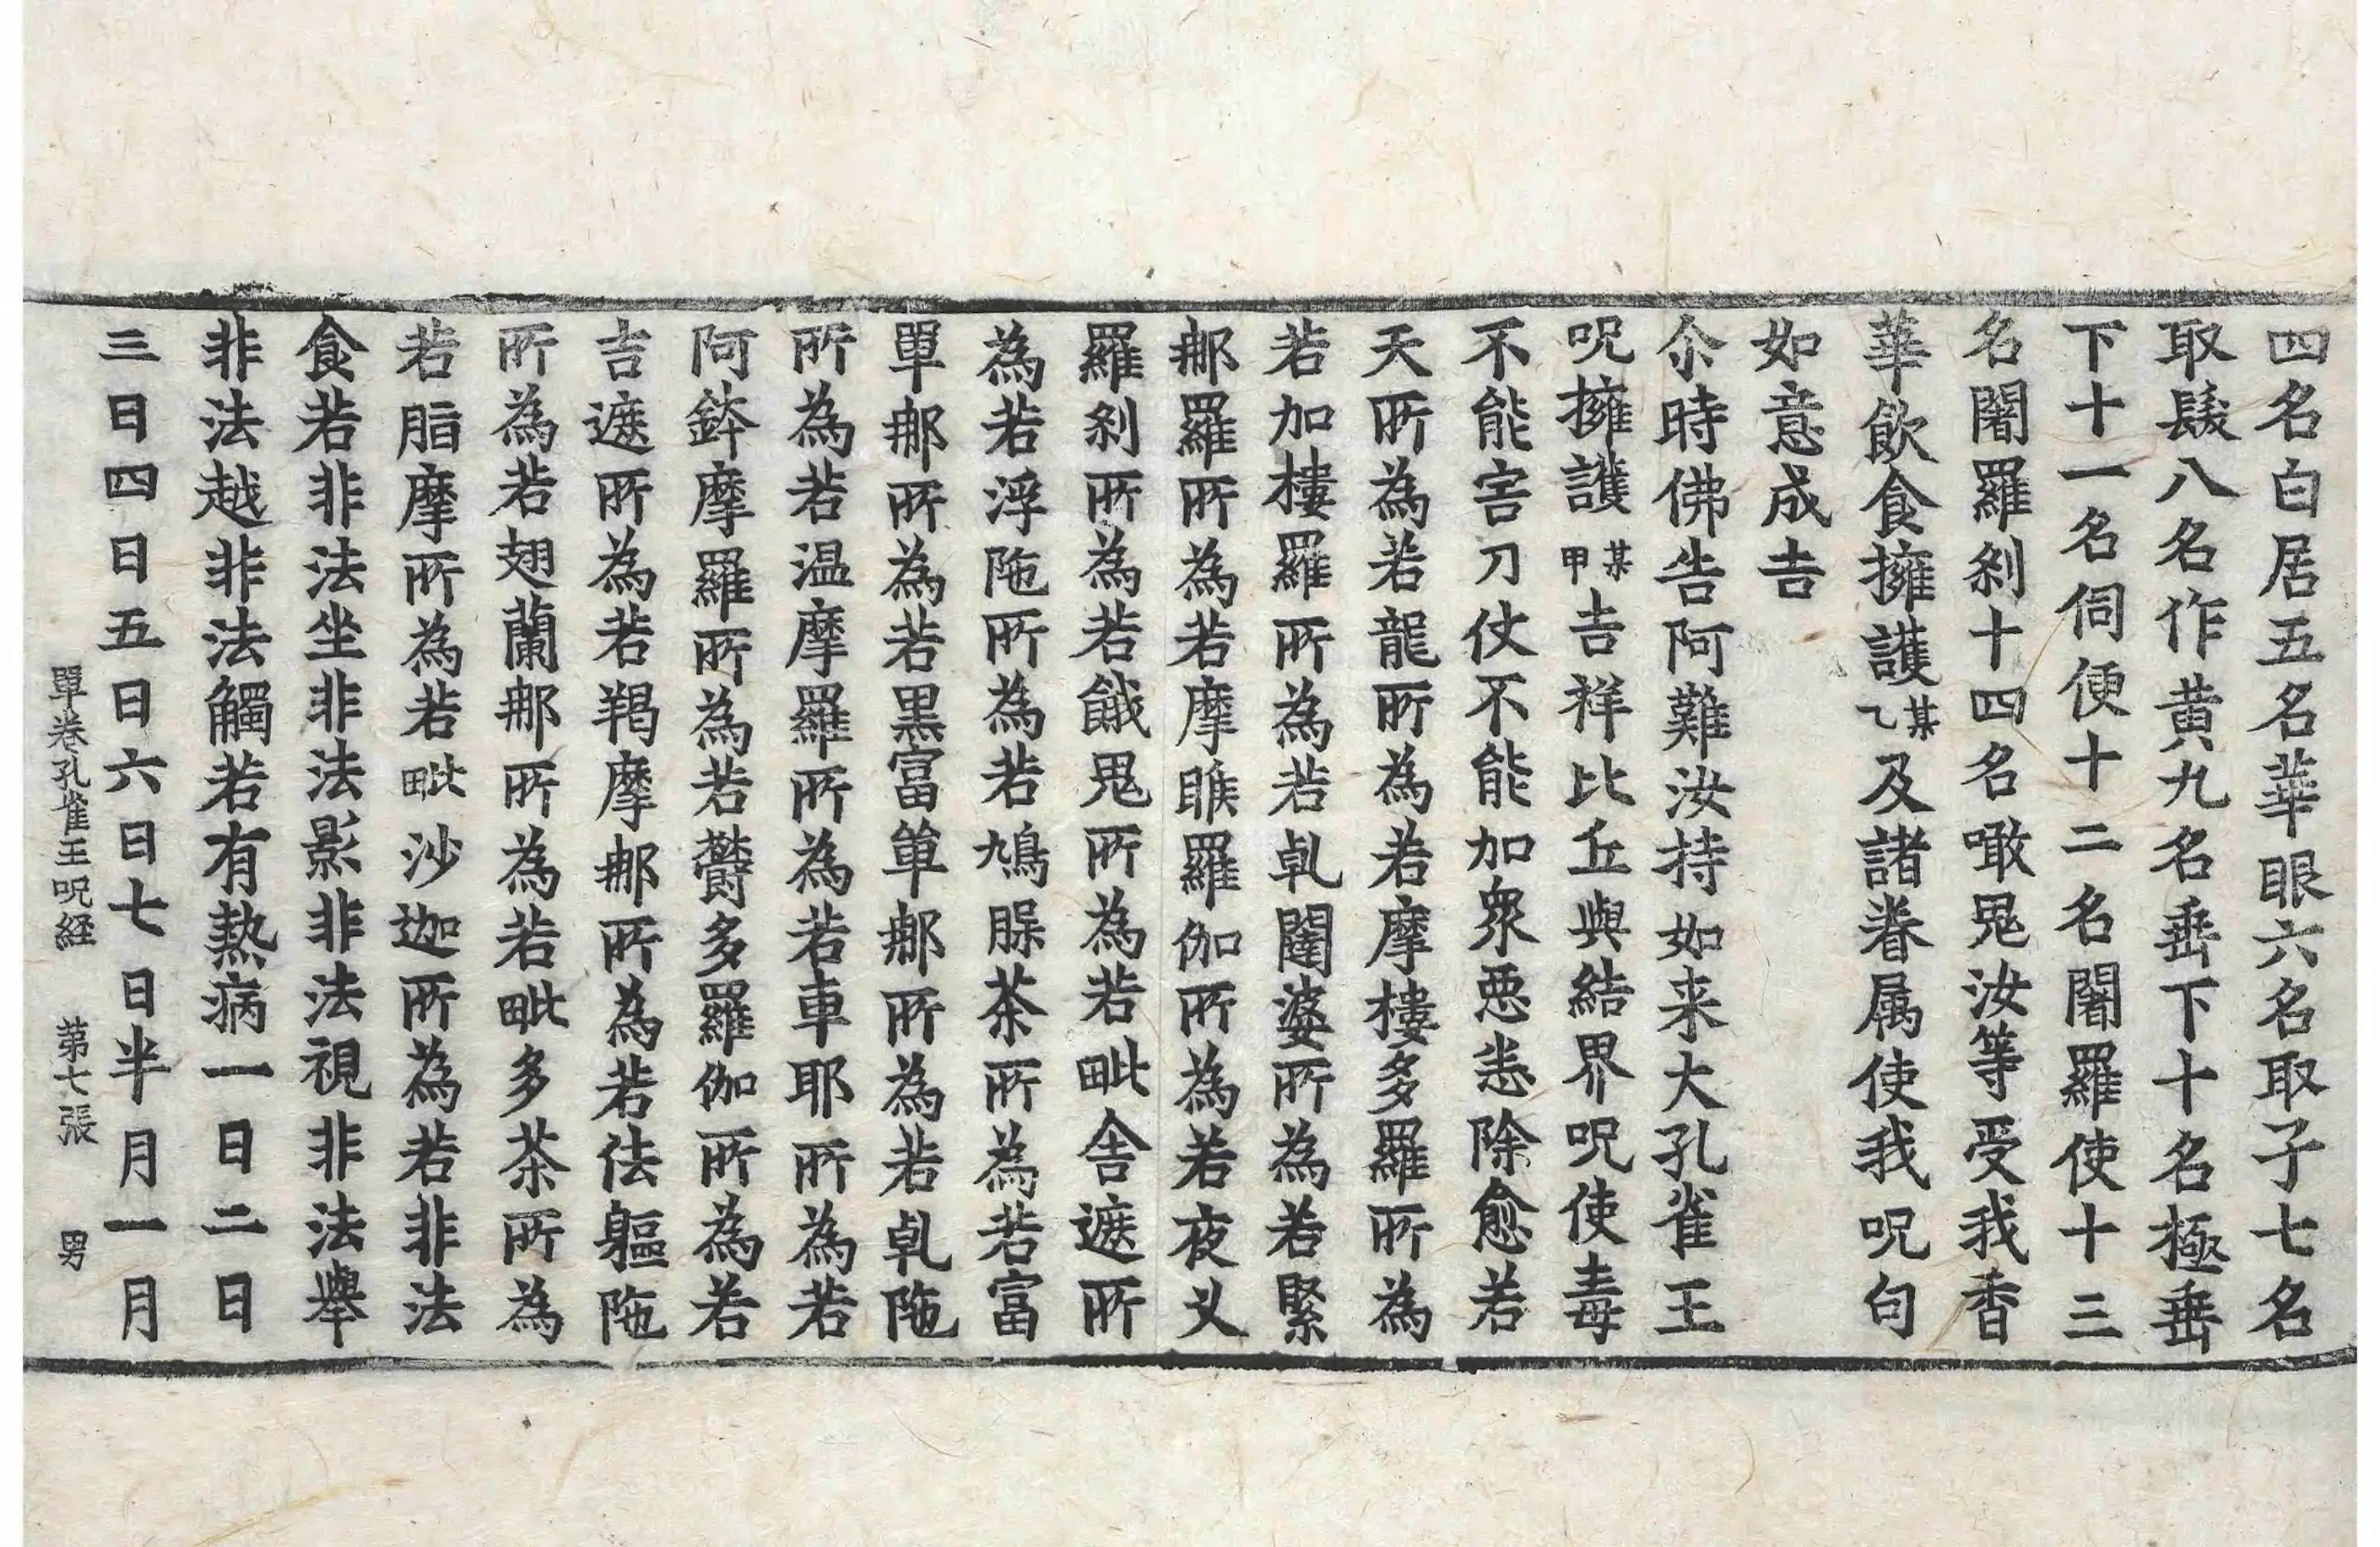 四名白居五名華眼六名取子七名
取髮八名作黃九名垂下十名極垂
下十一名伺便十二名闍羅使十三
名闍羅刹十四名噉鬼汝等受我香
華飲食擁護某乙及諸眷属使我呪句
如意成吉
尒時佛告阿難汝持如来大孔雀王
呪擁護某甲吉祥比丘與結界呪使毒
不能害刀仗不能加衆惡恚除愈若
天所為若龍所為若摩樓多羅所為
若加樓羅所為若乹闥婆所為若緊
郍羅所為若摩睺羅伽所為若夜叉
羅刹所為若餓鬼所為若毗舍遮所
為若浮陁所為若鳩腂茶所為若富
單郍所為若黒富單郍所為若乹陁
所為若温摩羅所為若車耶所為若
阿鉢摩羅所為若欝多羅伽所為若
吉遮所為若羯摩郍所為若佉軀陁
所為若翅蘭郍所為若毗多茶所為
若脂摩所為若毗沙迦所為若非法
食若非法坐非法影非法視非法舉
非法越非法觸若有熱病一日二日
三日四日五日六日七日半月一月
單卷孔雀王呪経 第七張 男